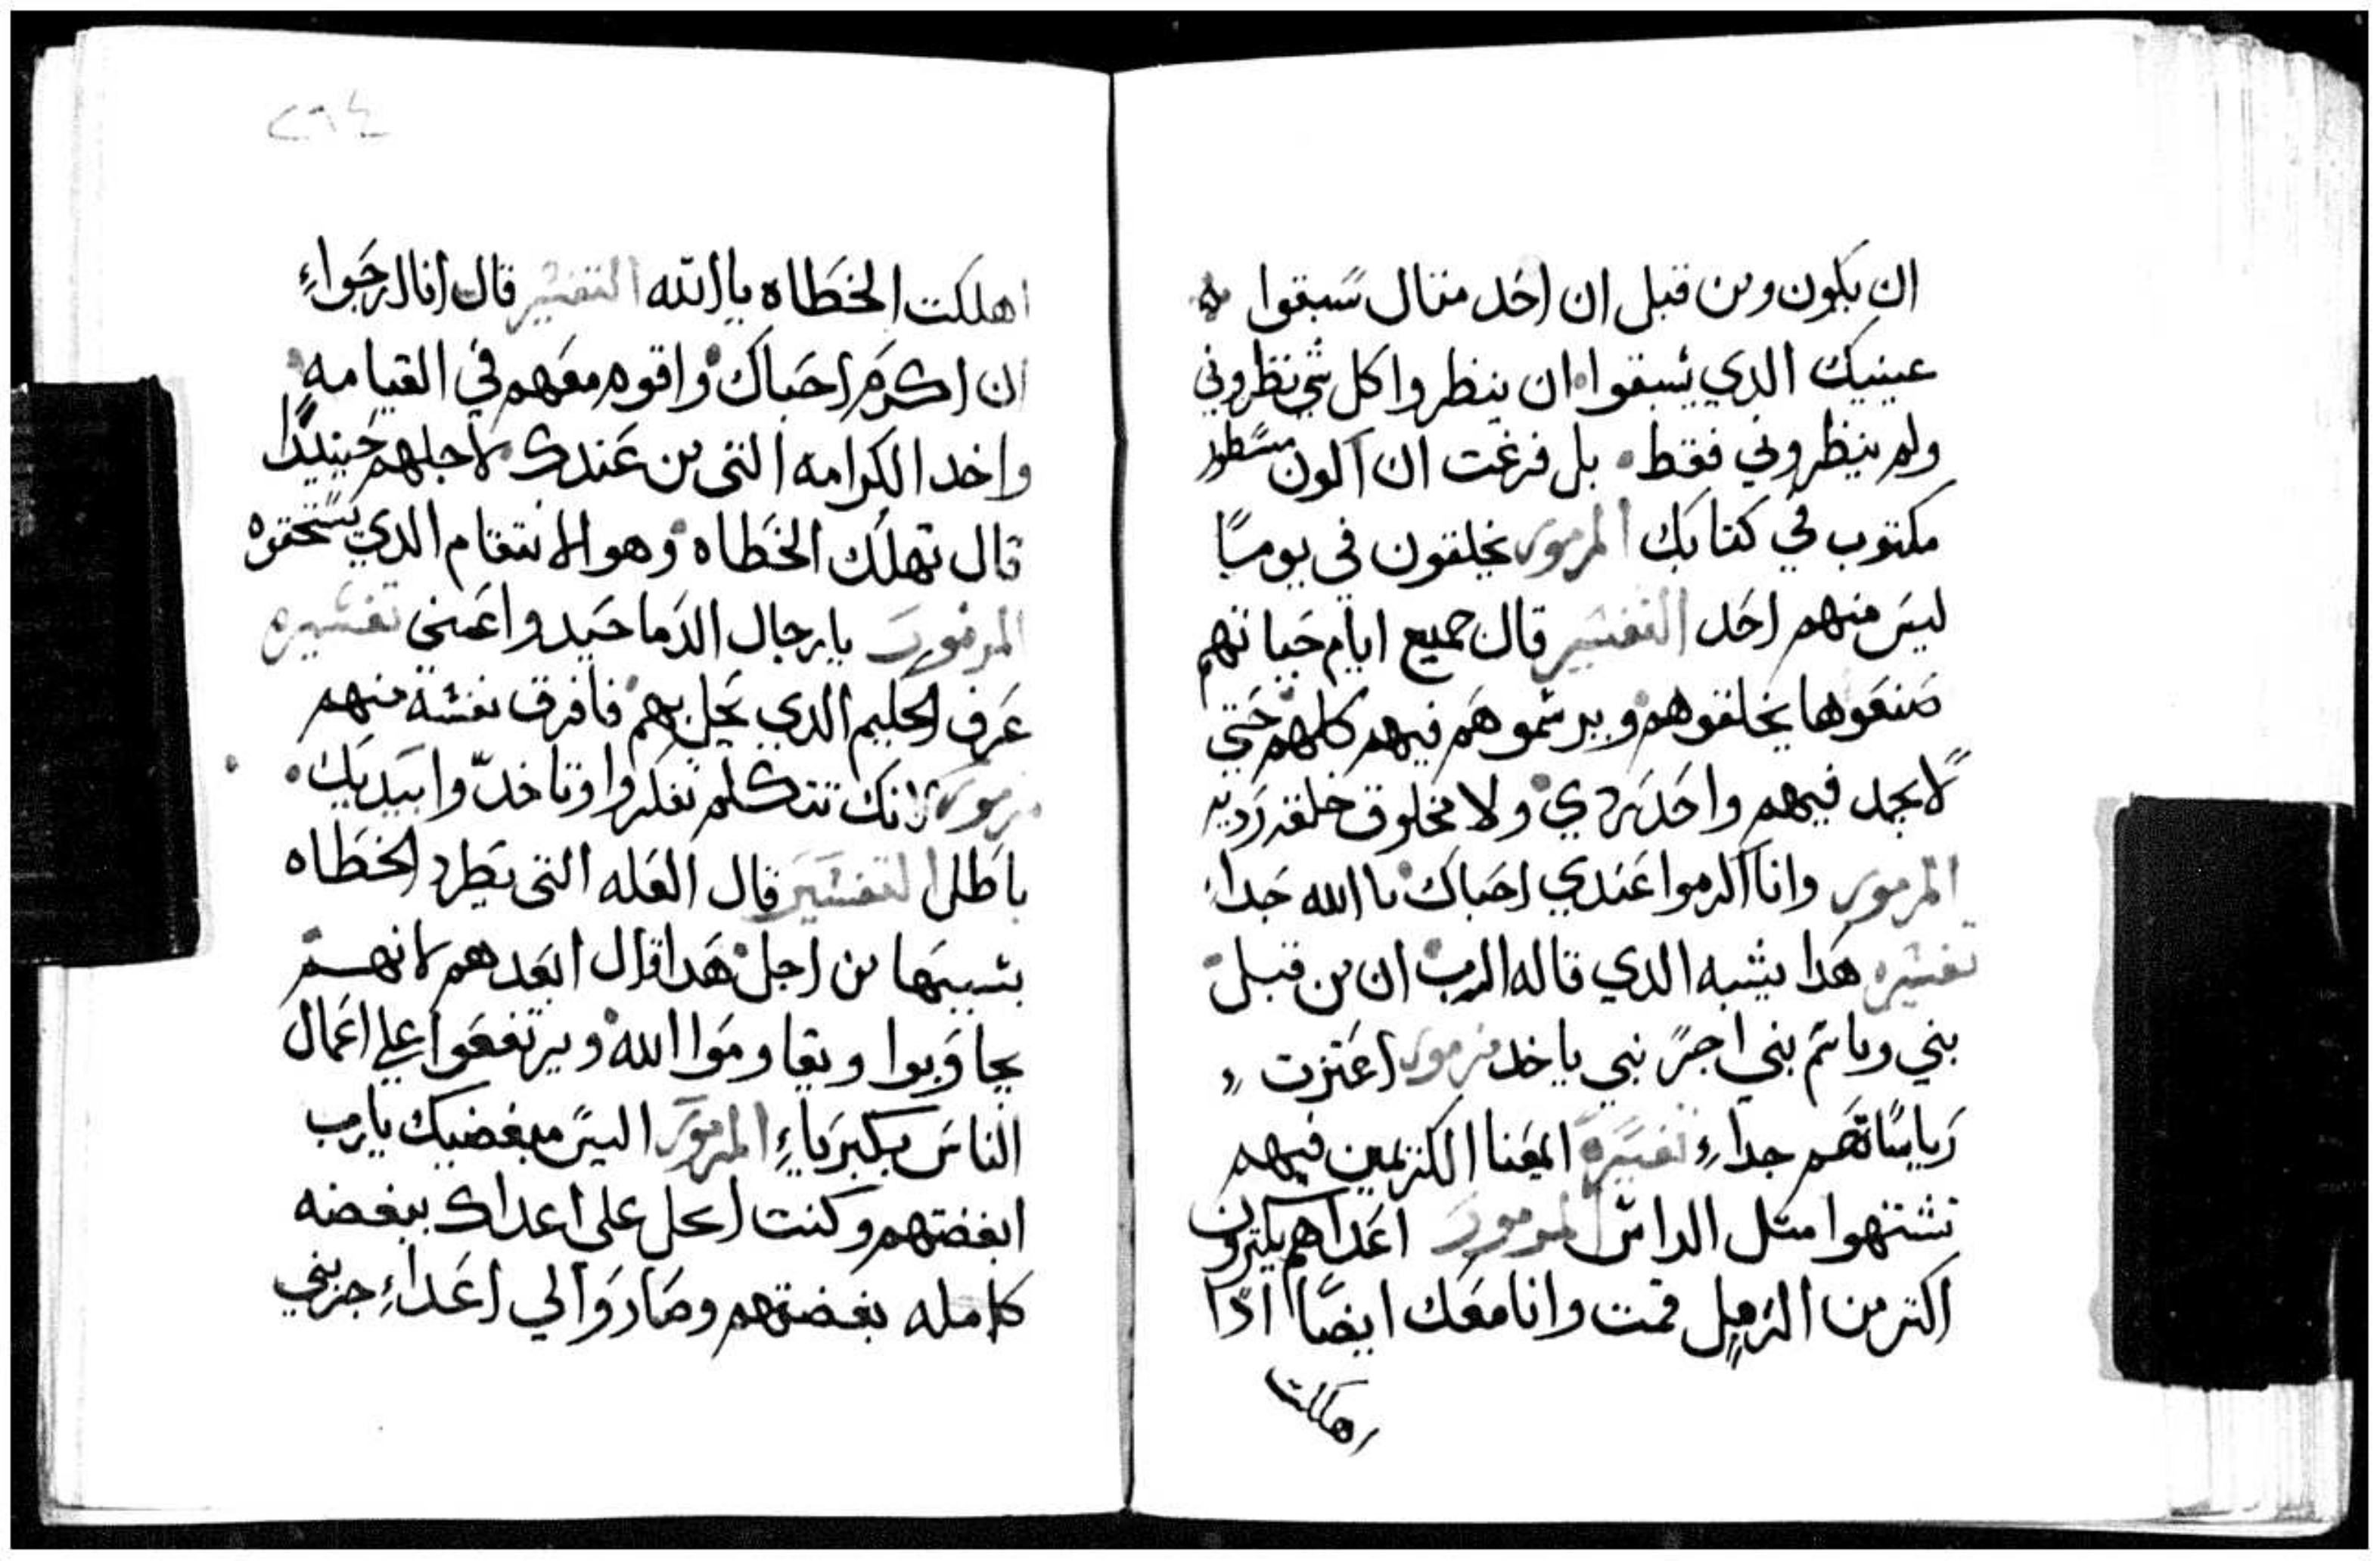 ان يكون ومن قبل ان اخد متال سبقوا
عينيك الدي يسبقوا ان ينظروا كل شي نظروني
ولم ينظروني فقط بل فرغت ان اكون مسطور
مكتوب في كتابك المزمور يخلقون في يوميا
ليس منهم احد التفسير قال جميع ايام حياتهم
صنعوها يخلقوهم ويرسموهم فيهم كلهم حتي
لا يجد فيهم واحد ردي ولا مخلوق خلقه رديه
المزمور وانا اكرموا عندي احباك يا الله جدا
تفسيره هدا يشبه الدي قاله الرب ان من قبل
نبي وباسم نبي اجر نبي ياخد مزمور اعتزت
رياساتهم جداء تفسيره المعنا الكنزيمين فيهم
تشتهوا متل الداش المزمور اعداهم يكترون
اكتر من الرمل قمت وانا معك ايضا ادا
اهلكت
٢٩٤
اهلكت الخطاه يا الله التفسير قال انا ارجواء
ان اكرم احباك واقوم معهم في القيامه
واخد الكرامه التي من عندك لاجلهم حينيدا
قال تهلك الخطاه وهو الانتقام الدي يستحقوه
المزمور يا رجال الدما حيدوا عني تفسيره
عرف الحليم الدي يحل بهم فافرق نفسه منهم
مزمور لانك تتكلم تفكروا وتاخد وابيديك
باطلا التفسير قال العله التي يطرد الخطاه
بسببها من اجل هدا قال ابعدهم لانهم
يجاوبوا ويقاوموا الله ويرتفعوا علي اعمال
الناس بكبرياء المزمور اليس مبغضيك يارب
ابغضتهم وكنت احل على اعداك ببغضه
كامله بغضتهم وصاروا لي اعداء جزبني